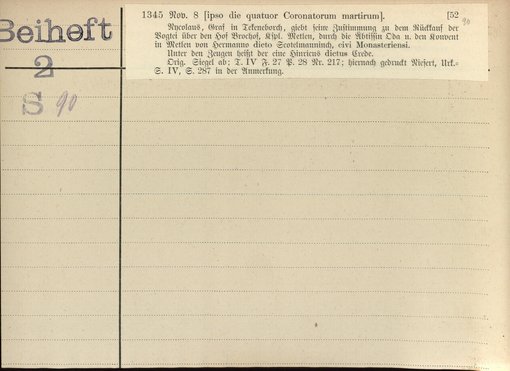 Beiheft
2
S 90
1345 Nov. 8 [ipso die quatuor Coronatorum martirum]. [52
90
Nycolaus, Graf in Tekeneborch, giebt seine Zustimmung zu dem Rückkauf der
Vogtei über den Hof Brochof, Kspl. Metlen, durch die Äbtissin Oda u. den Konvent
in Metlen von Hermanno dicto Scotelmanninch, civi Monasteriensi.
Unter den Zeugen heißt der eine Hinricus dictus Crede.
Orig. Siegel ab; T. IV F. 27 P. 28 Nr. 217; hiernach gedruckt Niesert, Urk.-
S. IV, S. 287 in der Anmerkung.